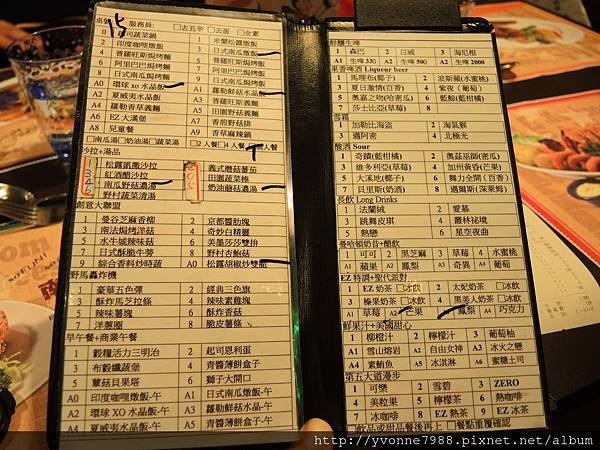 15 服務員: □去五辛 □去蔥 □全素
2 印度咖哩燉飯 3 日式南瓜燉飯
4 普羅旺斯焗烤麵 5 普羅旺斯焗烤飯
6 阿里巴巴焗烤麵 7 阿里巴巴焗烤飯
8 日式南瓜焗烤麵 9 日式南瓜焗烤飯
A0 環球 xo 水晶飯 A1 羅勒鮮菇水晶飯
A2 夏威夷水晶飯 A3 普羅旺斯義麵
A4 羅勒香草義麵 A5 田園野菇義麵
A6 EZ 大漢堡 A7 香煎野菇排
A8 兒童餐 A9 香草麻辣鍋
□南瓜湯 □奶油湯 □蔬菜湯 □2 人餐 □4 人餐
沙拉+湯品
松露凱撒沙拉 義式蘑菇蕃茄
紅酒醋沙拉 田園蔬菜棒
南瓜野菇濃湯 奶油蘑菇濃湯
野村蔬菜清湯
創意大聯盟
1 曼谷芝麻香柳 2 京都醬肋塊
3 南法焗烤洋菇 4 奇妙白精靈
5 水牛城辣味菇 6 美墨莎莎雙拚
7 日式酥脆牛蒡 8 野村杏鮑菇
9 綜合香料炒時蔬 A0 松露胡椒炒雙脆
野馬轟炸機
1 豪華五色彈 2 經典三色旗
3 酥炸馬芝拉條 4 辣味素雞塊
5 辣味薯塊 6 酥炸香菇
7 洋蔥圈 8 脆皮薯條
早午餐+商業午餐
1 穀糧活力三明治 2 起司恩利蛋
3 布織纖蔬堡 4 青醬薄餅盒子
5 蕈菇貝果塔 6 獅子大開口
A0 印度咖哩燉飯-午 A1 日式南瓜燉飯-午
A2 環球 XO 水晶飯-午 A3 羅勒鮮菇水晶-午
A4 夏威夷水晶飯-午 A5 青醬薄餅盒子-午
1 森巴 2 百威 3 海尼根
A1 生啤 330 A2 生啤 500 A3 生啤 2000
果香啤酒 Liqueur beer
1 馬里布(椰子) 2 波斯貓(水蜜桃)
3 夏日激情(百香) 4 紫夜 (葡萄)
5 奧嘉之吻(哈密瓜) 6 藍鯨(藍柑橘)
7 莎士比亞(草莓)
雪霜
1 加勒比海盜 2 淘氣猴
3 邁阿密 4 北極光
酸酒 Sour
1 奇蹟(藍柑橘) 2 奧茲巫師(密瓜)
3 維多利亞(草莓) 4 加州黃昏(芒果)
5 大溪地(椰子) 6 舞力全開(百香)
7 貝里斯(奶酒) 8 邁爾斯(深萊姆)
長飲 Long Drinks
1 法蘭絨 2 愛慕
3 跳舞皮琪 4 叢林秘境
5 熱戀 6 星空夜曲
曼哈頓奶昔+醋飲
2 黑芝麻 3 草莓 4 水蜜桃
A1 蘋果 A2 鳳梨 A3 奇異 A4 葡萄
EZ 特調+聖代派對
1 EZ 奶茶 □冰飲 2 太妃奶茶 □冰飲
3 榛果奶茶 □冰飲 4 黑美人奶茶 □冰飲
A1 草莓 A2 芒果 A3 鳳梨 A4 巧克力
鮮果汁+美國甜心
1 柳橙汁 2 檸檬汁 3 葡萄柚
A1 雪山熔岩 A2 自由女神 A3 冰火之戀
A4 素鮪魚 A5 冰淇淋 A6 蜜糖土司
第五大道漫步
1 可樂 2 雪碧 3 ZERO
4 美粒果 5 檸檬茶 6 熱咖啡
7 冰咖啡 8 EZ 熱茶 9 EZ 冰茶
飲品或甜品餐後再上 □餐點重複確認
http://yvonne7988.pixnet.net/album